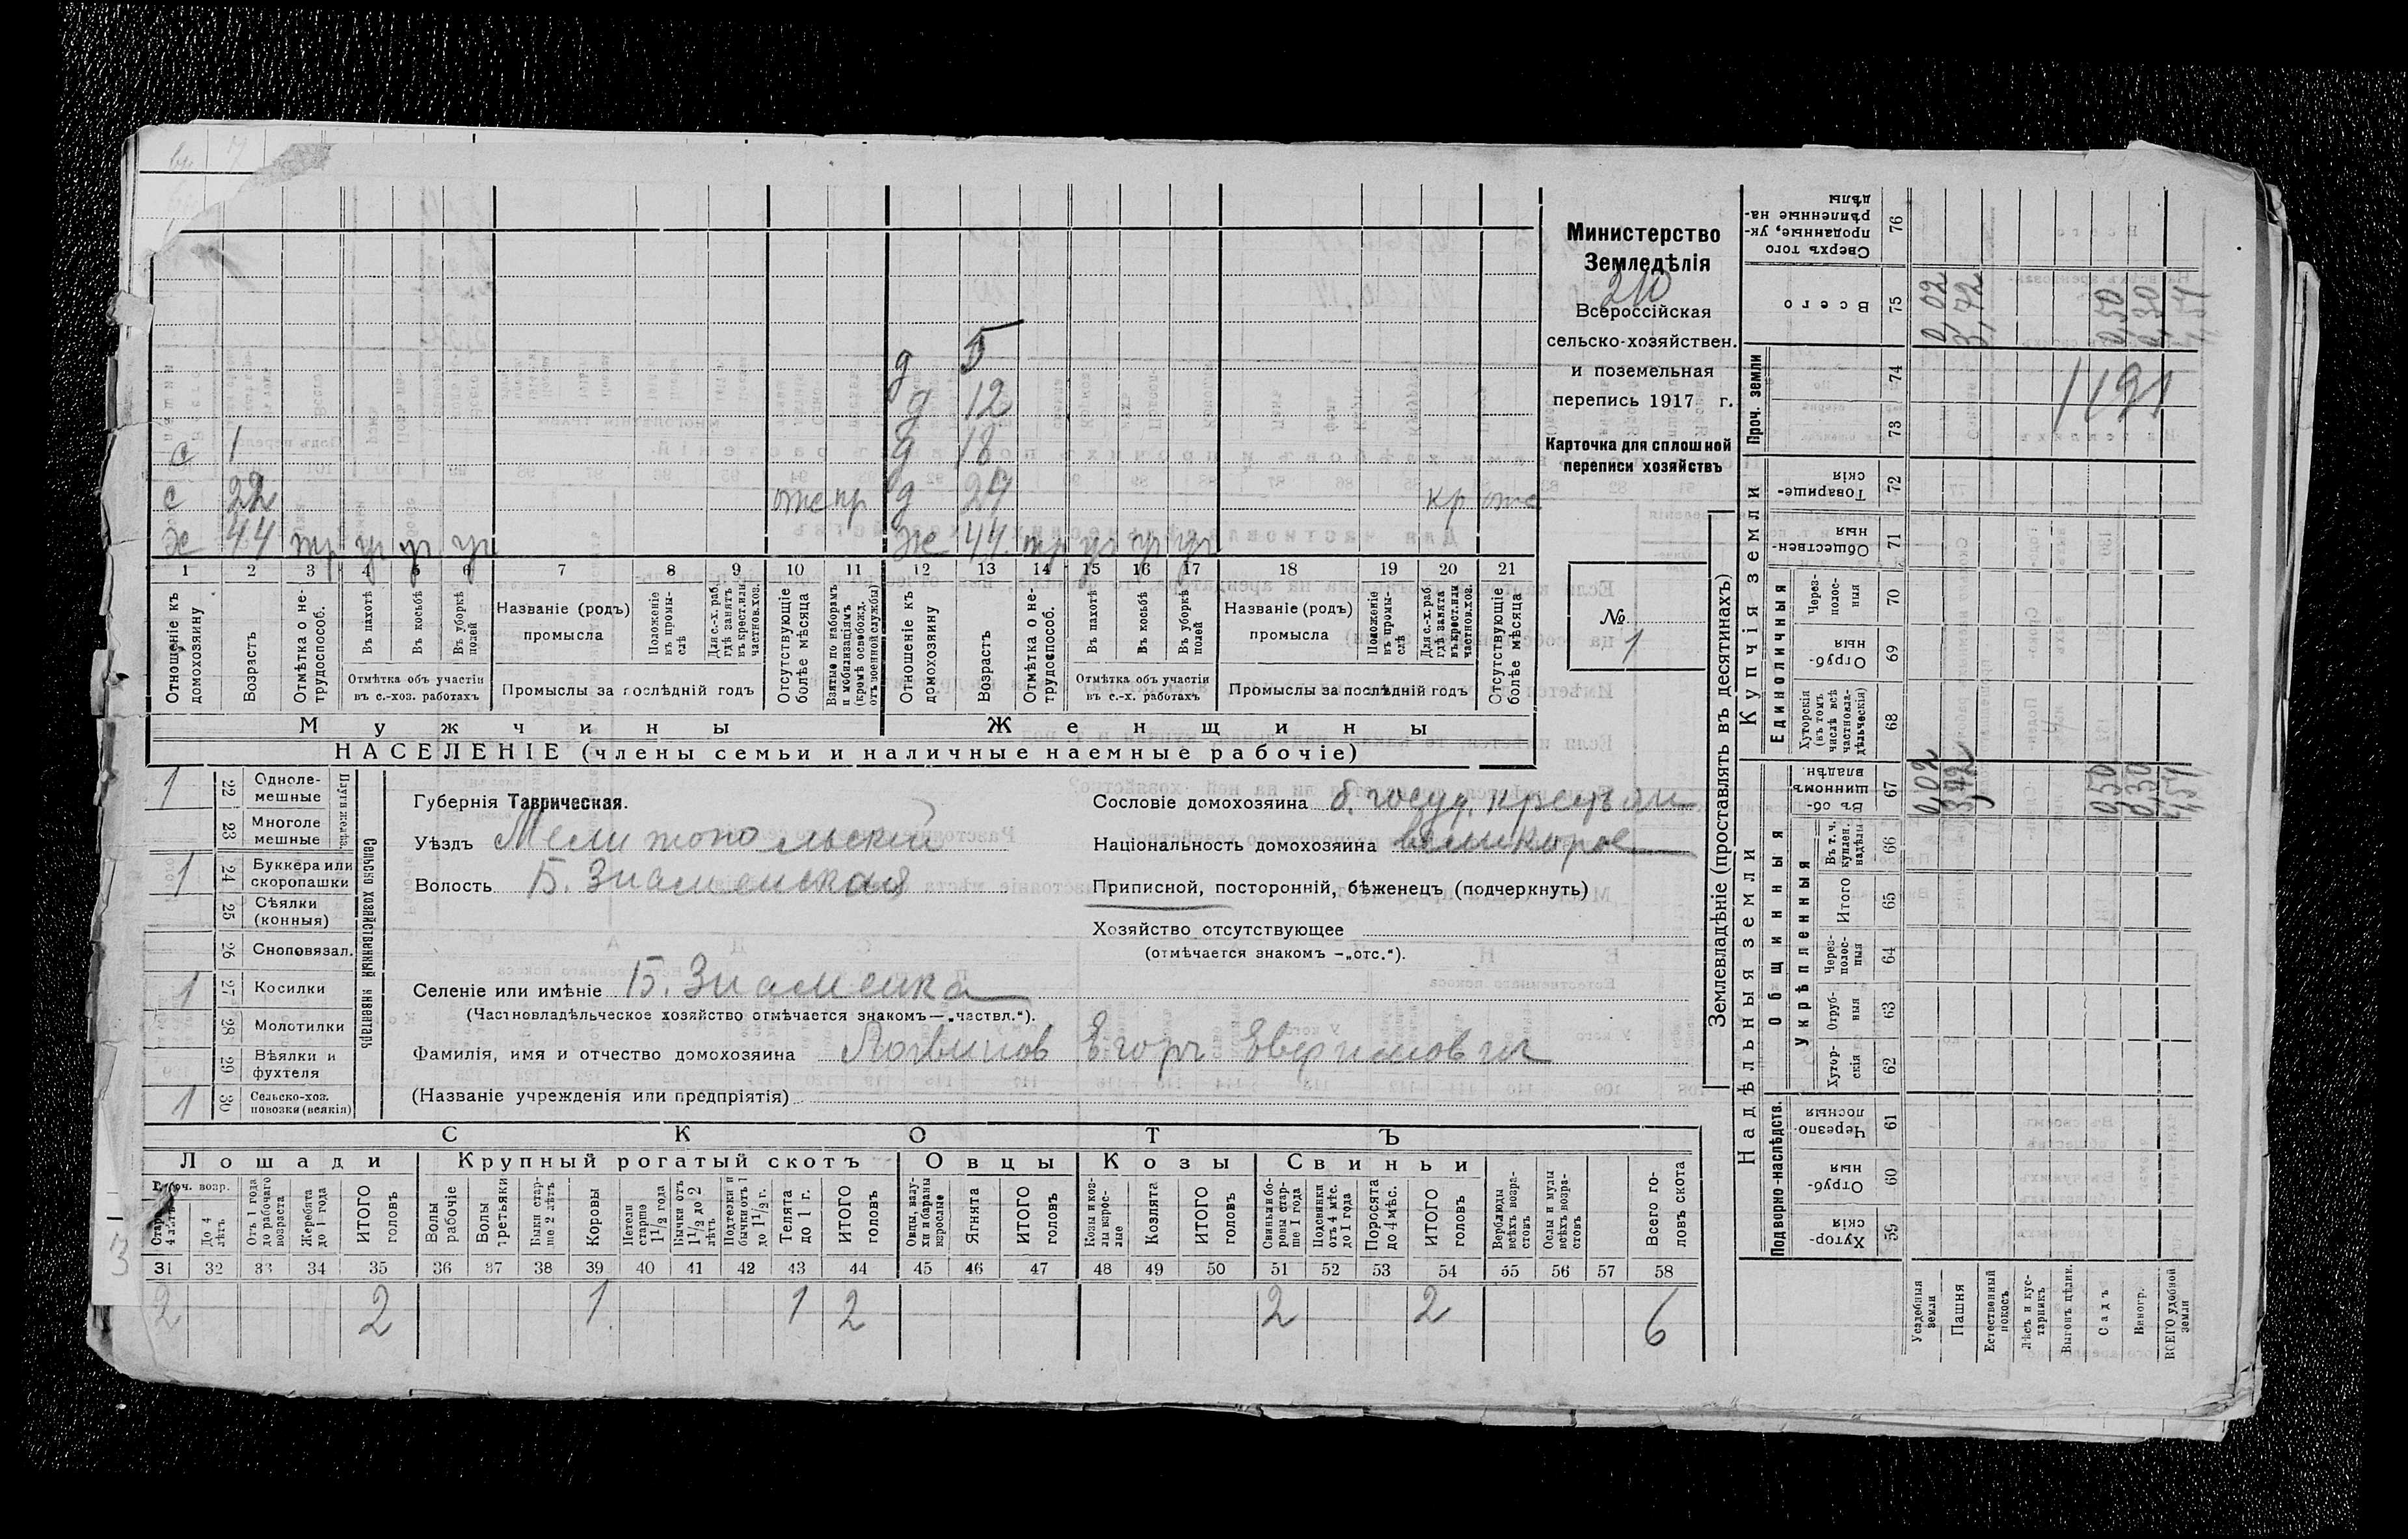 Министерство
Земледѣлія
210
Всероссійская
сельско-хозяйствен.
и поземельная
перепись 1917 г.
Карточка для сплошной
переписи хозяйствъ
№
1
д 5
д 12
с 1 д 18
с 22 отс пр д 24 кр отс
х 44 тр уч уч уч ж 44 тр уч уч уч
1 2 3 4 5 6 7 8 9 10 11 12 13 14 15 16 17 18 19 20 21
Отношеніе къ домохозяину
Возрастъ
Отмѣтка о нетрудоспособ.
Въ пахотѣ
Въ косьбѣ
Въ уборкѣ полей
Отмѣтка объ участіи въ с.-хоз. работахъ
Названіе (родъ) промысла
Положеніе въ промыслѣ
Для с.-х. раб. гдѣ занятъ въ крест. или частнов. хоз.
Промыслы за послѣдній годъ
Отсутствующіе болѣе мѣсяца
Взятые по наборамъ и мобилизаціямъ (кромѣ освобожд. отъ военной службы)
Отношеніе къ домохозяину
Возрастъ
Отмѣтка о нетрудоспособ.
Въ пахотѣ
Въ косьбѣ
Въ уборкѣ полей
Отмѣтка объ участіи въ с.-х. работахъ
Названіе (родъ) промысла
Положеніе въ промыслѣ
Для с.-х. раб. гдѣ занята въ крест. или частнов. хоз.
Промыслы за послѣдній годъ
Отсутствующіе болѣе мѣсяца
Мужчины Женщины
НАСЕЛЕНІЕ (члены семьи и наличные наемные рабочіе)
Сельско хозяйственный инвентарь
Плуги желѣзн.
1 22 Однолемешные
23 Многолемешные
1 24 Буккера или скоропашки
25 Сѣялки (конныя)
26 Сноповязал.
1 27 Косилки
28 Молотилки
29 Вѣялки и фухтеля
1 30 Сельско-хоз. повозки (всякія)
Губернія Таврическая.
Уѣздъ Мелитопольскій
Волость Б. Знаменская
Сословіе домохозяина б. госуд. крестьян
Національность домохозяина великорос
Приписной, посторонній, бѣженецъ (подчеркнуть)
Хозяйство отсутствующее
(отмѣчается знакомъ –„отс.“).
Селеніе или имѣніе Б. Знаменка
(Частновладѣльческое хозяйство отмѣчается знакомъ—„частвл.“).
Фамилія, имя и отчество домохозяина Логвинов Егор Евфимович
(Названіе учрежденія или предпріятія)
СКОТЪ
Лошади Крупный рогатый скотъ Овцы Козы Свиньи
Рабоч. возр.
Старше 4 лѣтъ
До 4 лѣтъ
Отъ 1 года до рабочаго возраста
Жеребята до 1 года
ИТОГО головъ
Волы рабочіе
Волы третьяки
Быки старше 2 лѣтъ
Коровы
Нетели старше 1½ года
Бычки отъ 1½ до 2 лѣтъ
Подтелки и бычки отъ 1 до 1½ г.
Телята до 1 г.
ИТОГО головъ
Овцы, валухи и бараны взрослые
Ягнята
ИТОГО головъ
Козы и козлы взрослые
Козлята
ИТОГО головъ
Свиньи и боровы старше 1 года
Подсвинки отъ 4 мѣс. до 1 года
Поросята до 4 мѣс.
ИТОГО головъ
Верблюды всѣхъ возрастовъ
Ослы и мулы всѣхъ возрастовъ
Всего головъ скота
31 32 33 34 35 36 37 38 39 40 41 42 43 44 45 46 47 48 49 50 51 52 53 54 55 56 57 58
2 2 1 1 2 2 2 6
3
Землевладѣніе (проставлять въ десятинахъ)
Надѣльныя земли Купчія земли Проч. земли
Подворно-наслѣдств.
Общинныя
Укрѣпленныя
Единоличныя
Хуторскія 59
Отрубныя 60
Черезполосныя 61
Хуторскія 62
Отрубныя 63
Черезполосныя 64
Итого 65
Въ т. ч. куплен. надѣлы 66
Въ общинномъ владѣн. 67
Хуторскія (въ томъ числѣ всѣ частновладѣльческія) 68
Отрубныя 69
Черезполосныя 70
Общественныя 71
Товарищескія 72
73
74
Всего 75
Сверхъ того проданные, укрѣпленные надѣлы 76
Усадебныя земли 0,02 0,02
Пашня 3,72 3,72
Естественный покосъ
Лѣсъ и кустарникъ
Выгонъ цѣлин.
Садъ 0,50 0,50
Виногр. 0,30 0,30
ВСЕГО удобной земли 4,54 4,54
1191